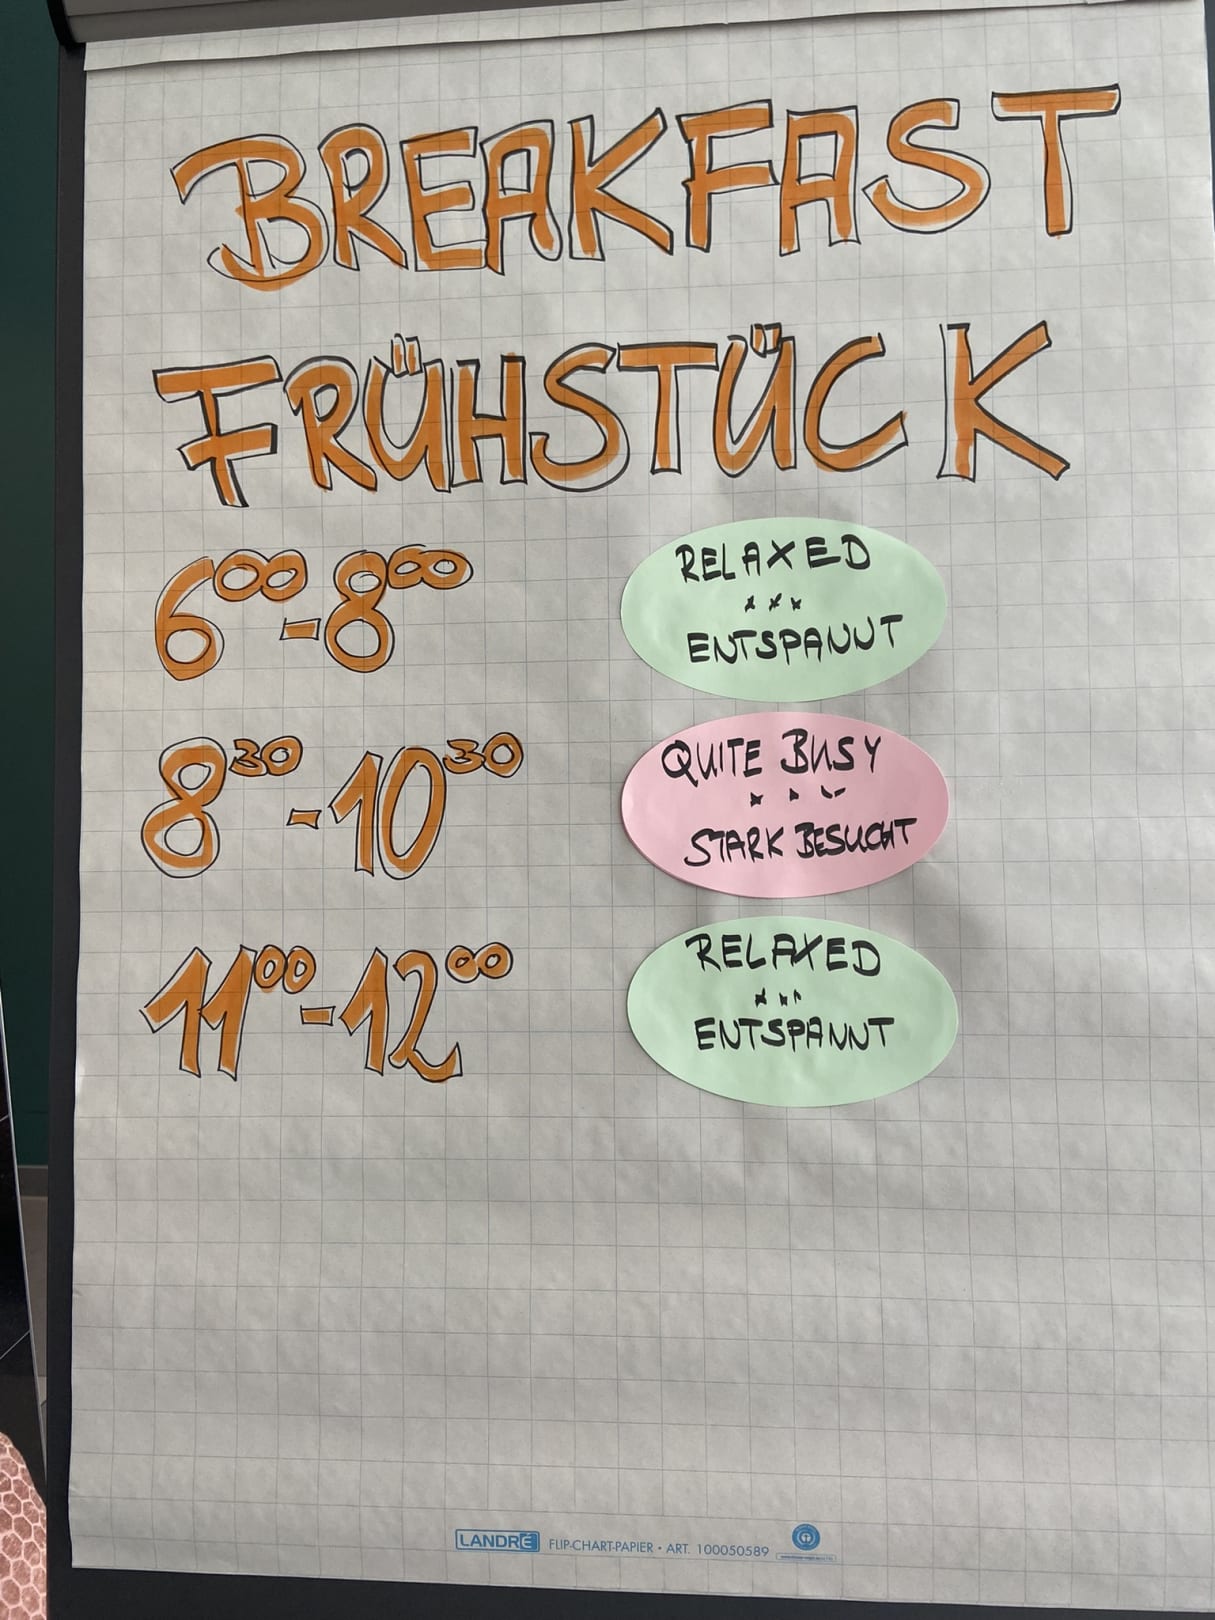 BREAKFAST
FRÜHSTÜCK
600-800
RELAXED
ENTSPANNT
830-1030
QUITE BUSY
STARK BESUCHT
1100-1200
RELAXED
ENTSPANNT
LANDRÉ FLIP-CHART-PAPIER • ART. 100050589